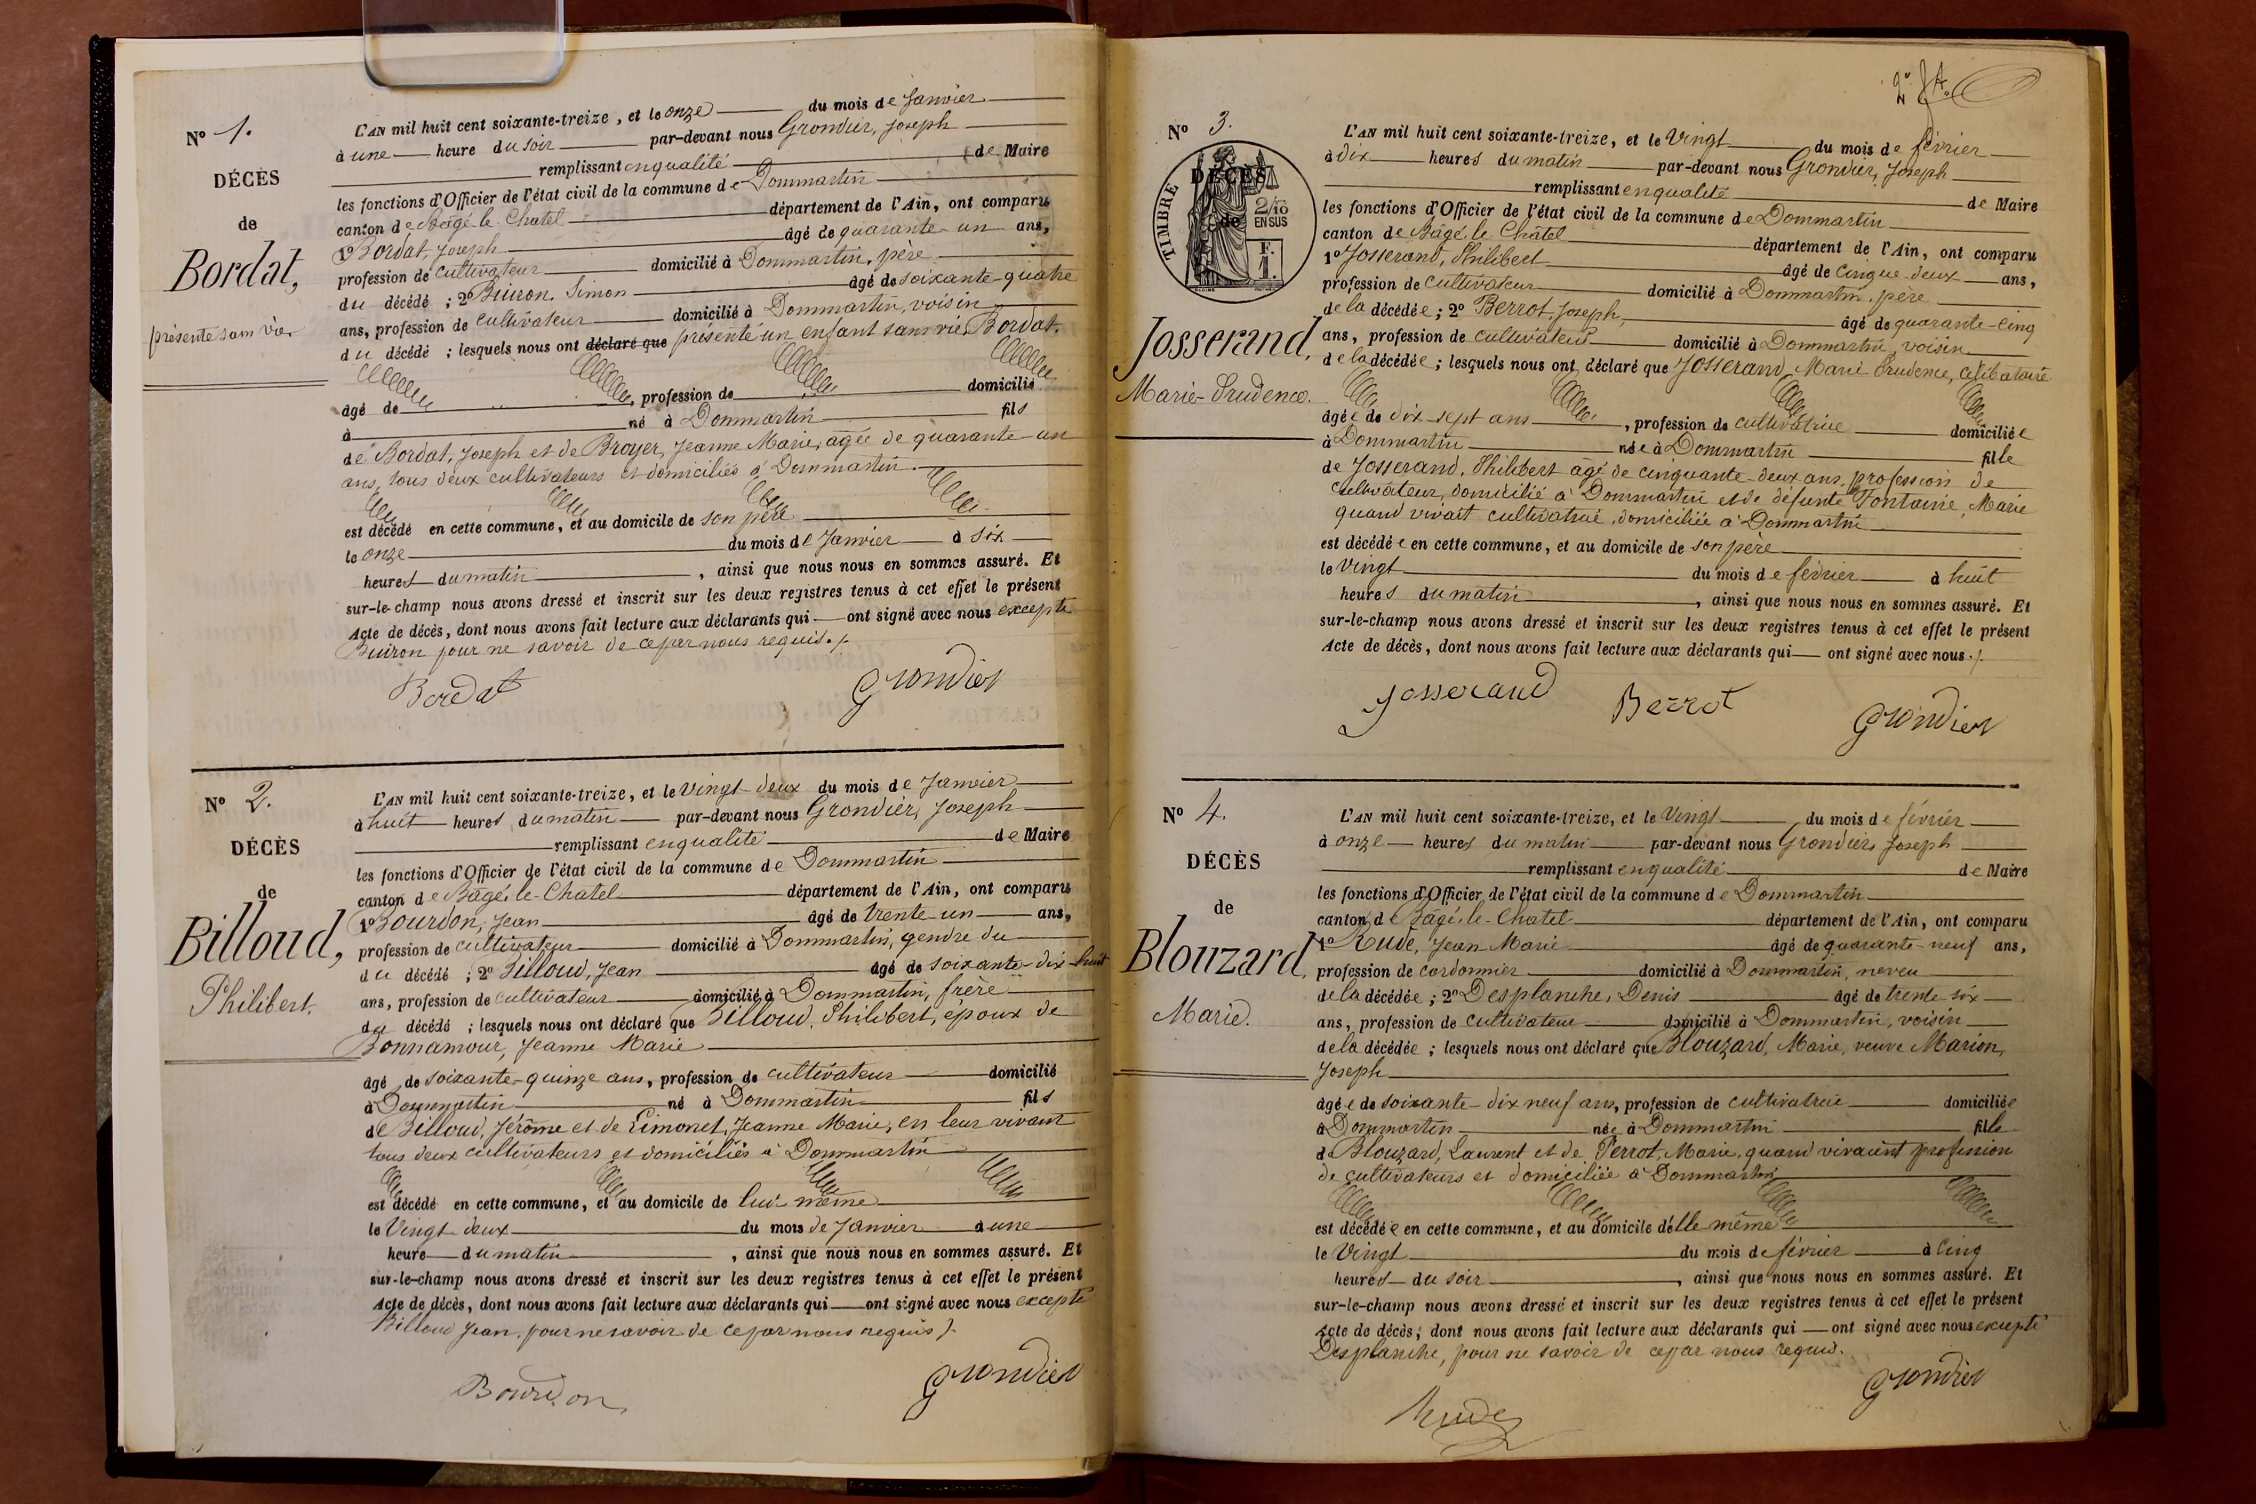 N° 1.
DÉCÈS
de
Bordat,
présenté sans vie
L'AN mil huit cent soixante-treize, et le onze du mois de Janvier
à une heure du soir par-devant nous Grondier, Joseph
remplissant en qualité de Maire
les fonctions d'Officier de l'état civil de la commune de Dommartin
canton de Bâgé-le-Chatel département de l'Ain, ont comparu
1° Bordat, Joseph âgé de quarante-un ans,
profession de cultivateur domicilié à Dommartin, père
du décédé ; 2° Buiron, Simon âgé de soixante-quatre
ans, profession de cultivateur domicilié à Dommartin, voisin
du décédé ; lesquels nous ont déclaré que présenté un enfant sans vie, Bordat.
âgé de , profession de domicilié
à né à Dommartin fils
de Bordat, Joseph et de Broyer, Jeanne Marie, agée de quarante-un
ans, tous deux cultivateurs et domiciliés à Dommartin.
est décédé en cette commune, et au domicile de son père
le onze du mois de Janvier à six
heures du matin , ainsi que nous nous en sommes assuré. Et
sur-le-champ nous avons dressé et inscrit sur les deux registres tenus à cet effet le présent
Acte de décès, dont nous avons fait lecture aux déclarants qui ont signé avec nous excepté
Buiron pour ne savoir de ce par nous requis./.
Bordat Grondier
N° 2.
DÉCÈS
de
Billoud,
Philibert.
L'AN mil huit cent soixante-treize, et le vingt-deux du mois de Janvier
à huit heures du matin par-devant nous Grondier, Joseph
remplissant en qualité de Maire
les fonctions d'Officier de l'état civil de la commune de Dommartin
canton de Bâgé-le-Chatel département de l'Ain, ont comparu
1° Bourdon, Jean âgé de trente-un ans,
profession de cultivateur domicilié à Dommartin, gendre du
du décédé ; 2° Billoud, Jean âgé de soixante-dix-huit
ans, profession de cultivateur domicilié à Dommartin, frère
du décédé ; lesquels nous ont déclaré que Billoud, Philibert, époux de
Bonnamour, Jeanne Marie
âgé de soixante-quinze ans, profession de cultivateur domicilié
à Dommartin né à Dommartin fils
de Billoud, Jérôme et de Limonet, Jeanne Marie, en leur vivant
tous deux cultivateurs et domiciliés à Dommartin
est décédé en cette commune, et au domicile de lui-même
le vingt deux du mois de Janvier à une
heure du matin , ainsi que nous nous en sommes assuré. Et
sur-le-champ nous avons dressé et inscrit sur les deux registres tenus à cet effet le présent
Acte de décès, dont nous avons fait lecture aux déclarants qui ont signé avec nous excepté
Billoud Jean, pour ne savoir de ce par nous requis./.
Bourdon Grondier
2e
N° 3.
TIMBRE
2/10
EN SUS
F.
1.
DÉCÈS
de
Josserand,
Marie-Prudence.
L'AN mil huit cent soixante-treize, et le vingt du mois de février
à dix heures du matin par-devant nous Grondier, Joseph
remplissant en qualité de Maire
les fonctions d'Officier de l'état civil de la commune de Dommartin
canton de Bâgé-le-Châtel département de l'Ain, ont comparu
1° Josserand, Philibert âgé de cinque-deux ans,
profession de cultivateur domicilié à Dommartin, père
de la décédée ; 2° Berrot, Joseph, âgé de quarante-cinq
ans, profession de cultivateur domicilié à Dommartin, voisin
de la décédée ; lesquels nous ont déclaré que Josserand Marie Prudence, célibataire
âgée de dix-sept ans , profession de cultivatrice domiciliée
à Dommartin née à Dommartin fille
de Josserand, Philibert âgé de cinquante-deux ans, profession de
cultivateur, domicilié à Dommartin et de défunte Fontaine, Marie
quand vivait cultivatrice, domiciliée à Dommartin
est décédée en cette commune, et au domicile de son père
le vingt du mois de février à huit
heures du matin , ainsi que nous nous en sommes assuré. Et
sur-le-champ nous avons dressé et inscrit sur les deux registres tenus à cet effet le présent
Acte de décès, dont nous avons fait lecture aux déclarants qui ont signé avec nous./.
Josserand Berrot Grondier
N° 4.
DÉCÈS
de
Blouzard,
Marie.
L'AN mil huit cent soixante-treize, et le vingt du mois de février
à onze heures du matin par-devant nous Grondier, Joseph
remplissant en qualité de Maire
les fonctions d'Officier de l'état civil de la commune de Dommartin
canton de Bâgé-le-Chatel département de l'Ain, ont comparu
1° Rude, Jean Marie âgé de quarante-neuf ans,
profession de cordonnier domicilié à Dommartin, neveu
de la décédée ; 2° Desplanche, Denis âgé de trente-six
ans, profession de cultivateur domicilié à Dommartin, voisin
de la décédée ; lesquels nous ont déclaré que Blouzard, Marie, veuve Marion,
Joseph
âgée de soixante-dix neuf ans, profession de cultivatrice domiciliée
à Dommartin née à Dommartin fille
de Blouzard, Laurent et de Perrot, Marie, quand vivaient profession
de cultivateurs et domiciliée à Dommartin
est décédée en cette commune, et au domicile d'elle même
le vingt du mois de février à cinq
heures du soir , ainsi que nous nous en sommes assuré. Et
sur-le-champ nous avons dressé et inscrit sur les deux registres tenus à cet effet le présent
Acte de décès, dont nous avons fait lecture aux déclarants qui ont signé avec nous excepté
Desplanche, pour ne savoir de ce par nous requis.
Rude Grondier